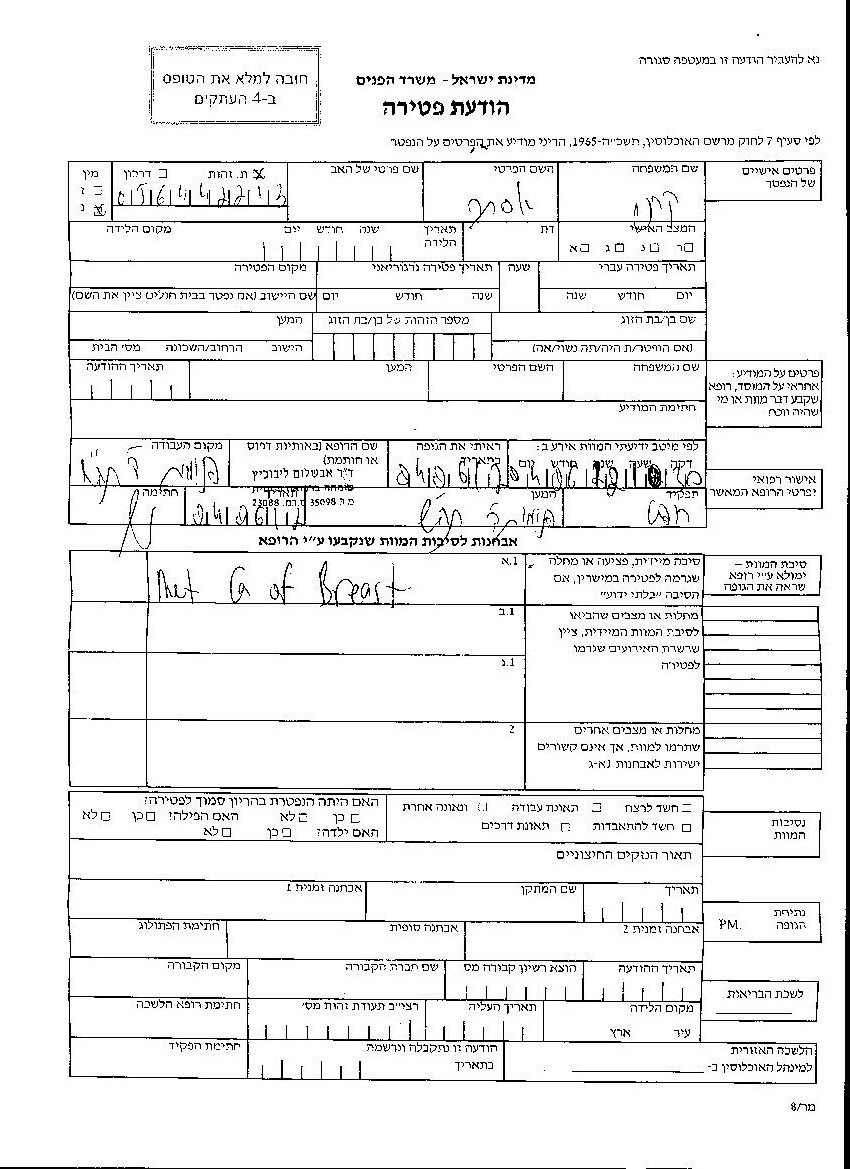 נא להעביר הודעה זו במעטפה סגורה
חובה למלא את הטופס
ב-4 העתקים
מדינת ישראל - משרד הפנים
הודעת פטירה
לפי סעיף 7 לחוק מרשם האוכלוסין, תשכ"ה-1965, הריני מודיע את הפרטים על הנפטר
פרטים אישיים
של הנפטר
שם המשפחה
השם הפרטי
שם פרטי של האב
ת. זהות
דרכון
מין
ז
נ
המצב האישי
ר נ ג א
דת
תאריך הלידה
שנה חודש יום
מקום הלידה
תאריך פטירה עברי
יום חודש שנה
שעה
תאריך פטירה גרגוריאני
שנה חודש יום
מקום הפטירה
שם היישוב (אם נפטר בבית חולים ציין את השם)
שם בן/בת הזוג
(אם הנפטר/ת היה/תה נשוי/אה)
מספר הזהות של בן/בת הזוג
המען
הישוב הרחוב/השכונה מס' הבית
פרטים על המודיע:
אחראי על המוסד, רופא
שקבע דבר מוות או מי
שהיה נוכח
שם המשפחה
השם הפרטי
המען
תאריך ההודעה
חתימת המודיע
אישור רפואי
ופרטי הרופא המאשר
לפי מיטב ידיעתי המוות אירע ב:
דקה שעה שנה חודש יום
ראיתי את הגופה
בתאריך
שם הרופא (באותיות דפוס
או חותמת)
ד"ר אבשלום ליבוביץ
מקום העבודה
תפקיד
המען
תאריך
חתימה
אבחנות לסיבות המוות שנקבעו ע"י הרופא
סיבת המוות -
ימולא ע"י רופא
שראה את הגופה
סיבה מיידית, פציעה או מחלה
שגרמה לפטירה במישרין, אם
הסיבה "בלתי ידוע"
1.א
Met Ca of Breast
מחלות או מצבים שהביאו
לסיבת המוות המיידית, ציין
שרשרת האירועים שגרמו
לפטירה
1.ב
1.ג
מחלות או מצבים אחרים
שתרמו למוות, אך אינם קשורים
ישירות לאבחנות 1א-ג
2
נסיבות
המוות
חשד לרצח
תאונת עבודה
תאונה אחרת
חשד להתאבדות
תאונת דרכים
האם היתה הנפטרת בהריון סמוך לפטירה?
כן לא האם הפילה? כן לא
האם ילדה? כן לא
תאור הנזקים החיצוניים
נתיחת
הגופה PM.
תאריך
שם המתקן
אבחנה זמנית 1
אבחנה זמנית 2
אבחנה סופית
חתימת הפתולוג
לשכת הבריאות
תאריך ההודעה
הוצא רשיון קבורה מס
שם חברת הקבורה
מקום הקבורה
מקום הלידה
עיר ארץ
תאריך העליה
רצי"ב תעודת זהות מס'
חתימת רופא הלשכה
הלשכה האזורית
למינהל האוכלוסין ב-
הודעה זו נתקבלה ונרשמה
בתאריך
חתימת הפקיד
מר/8